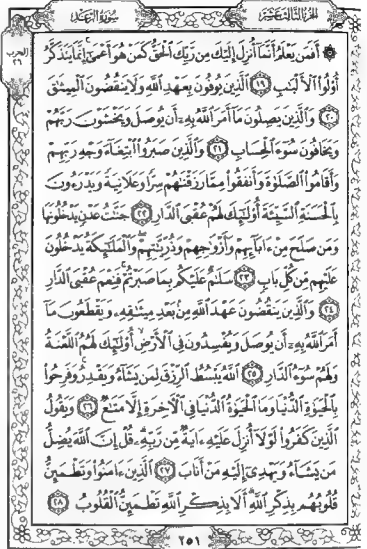 الجزء الثالث عشر
سورة الرعد
الحزب
٢٦
۞ أَفَمَن يَعْلَمُ أَنَّمَآ أُنزِلَ إِلَيْكَ مِن رَّبِّكَ ٱلْحَقُّ كَمَنْ هُوَ أَعْمَىٰٓ إِنَّمَا يَتَذَكَّرُ
أُو۟لُوا۟ ٱلْأَلْبَٰبِ ١٩ ٱلَّذِينَ يُوفُونَ بِعَهْدِ ٱللَّهِ وَلَا يَنقُضُونَ ٱلْمِيثَٰقَ
٢٠ وَٱلَّذِينَ يَصِلُونَ مَآ أَمَرَ ٱللَّهُ بِهِۦٓ أَن يُوصَلَ وَيَخْشَوْنَ رَبَّهُمْ
وَيَخَافُونَ سُوٓءَ ٱلْحِسَابِ ٢١ وَٱلَّذِينَ صَبَرُوا۟ ٱبْتِغَآءَ وَجْهِ رَبِّهِمْ
وَأَقَامُوا۟ ٱلصَّلَوٰةَ وَأَنفَقُوا۟ مِمَّا رَزَقْنَٰهُمْ سِرًّا وَعَلَانِيَةً وَيَدْرَءُونَ
بِٱلْحَسَنَةِ ٱلسَّيِّئَةَ أُو۟لَٰٓئِكَ لَهُمْ عُقْبَى ٱلدَّارِ ٢٢ جَنَّٰتُ عَدْنٍ يَدْخُلُونَهَا
وَمَن صَلَحَ مِنْ ءَابَآئِهِمْ وَأَزْوَٰجِهِمْ وَذُرِّيَّٰتِهِمْ وَٱلْمَلَٰٓئِكَةُ يَدْخُلُونَ
عَلَيْهِم مِّن كُلِّ بَابٍ ٢٣ سَلَٰمٌ عَلَيْكُم بِمَا صَبَرْتُمْ فَنِعْمَ عُقْبَى ٱلدَّارِ
٢٤ وَٱلَّذِينَ يَنقُضُونَ عَهْدَ ٱللَّهِ مِنۢ بَعْدِ مِيثَٰقِهِۦ وَيَقْطَعُونَ مَآ
أَمَرَ ٱللَّهُ بِهِۦٓ أَن يُوصَلَ وَيُفْسِدُونَ فِى ٱلْأَرْضِ أُو۟لَٰٓئِكَ لَهُمُ ٱللَّعْنَةُ
وَلَهُمْ سُوٓءُ ٱلدَّارِ ٢٥ ٱللَّهُ يَبْسُطُ ٱلرِّزْقَ لِمَن يَشَآءُ وَيَقْدِرُ وَفَرِحُوا۟
بِٱلْحَيَوٰةِ ٱلدُّنْيَا وَمَا ٱلْحَيَوٰةُ ٱلدُّنْيَا فِى ٱلْءَاخِرَةِ إِلَّا مَتَٰعٌ ٢٦ وَيَقُولُ
ٱلَّذِينَ كَفَرُوا۟ لَوْلَآ أُنزِلَ عَلَيْهِ ءَايَةٌ مِّن رَّبِّهِۦ قُلْ إِنَّ ٱللَّهَ يُضِلُّ
مَن يَشَآءُ وَيَهْدِىٓ إِلَيْهِ مَنْ أَنَابَ ٢٧ ٱلَّذِينَ ءَامَنُوا۟ وَتَطْمَئِنُّ
قُلُوبُهُم بِذِكْرِ ٱللَّهِ أَلَا بِذِكْرِ ٱللَّهِ تَطْمَئِنُّ ٱلْقُلُوبُ ٢٨
٢٥١